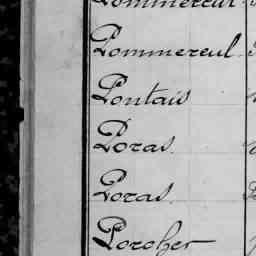 Pommereul
Pommereul
Pontais
Poras
Poras
Porcher